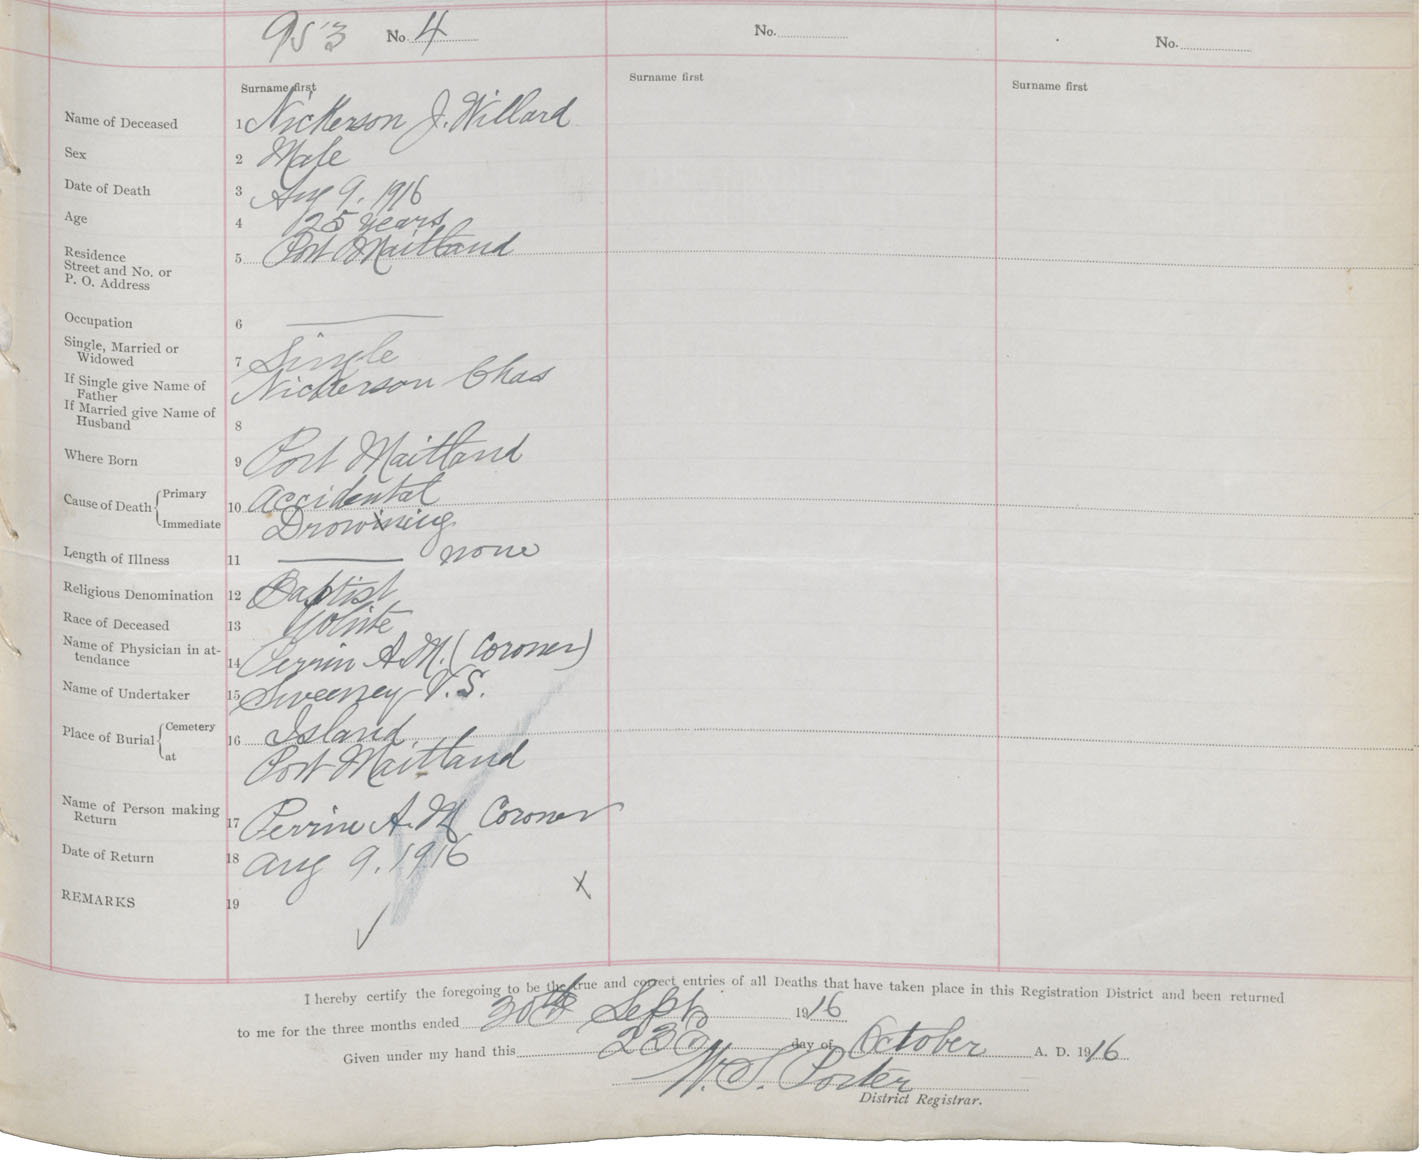 953 No. 4 No. No.
Surname first Surname first Surname first
Name of Deceased 1 Nickerson J. Willard
Sex 2 Male
Date of Death 3 Aug 9. 1916
Age 4 25 years
Residence
Street and No. or
P. O. Address
5 Port Maitland
Occupation 6
Single, Married or
Widowed
7 Single
If Single give Name of
Father
Nickerson Chas
If Married give Name of
Husband
8
Where Born 9 Port Maitland
Cause of Death Primary 10 Accidental
Immediate Drowning
Length of Illness 11 none
Religious Denomination 12 Baptist
Race of Deceased 13 White
Name of Physician in at-
tendance
14 Perrin A. M. (Coroner)
Name of Undertaker 15 Sweeney V. S.
Place of Burial Cemetery 16 Island
at Port Maitland
Name of Person making
Return
17 Perrin A. M. Coroner
Date of Return 18 Aug 9. 1916
REMARKS 19
x
I hereby certify the foregoing to be the true and correct entries of all Deaths that have taken place in this Registration District and been returned
to me for the three months ended 30th Sept. 1916
Given under my hand this 23d day of October A. D. 1916
W. S. Porter
District Registrar.